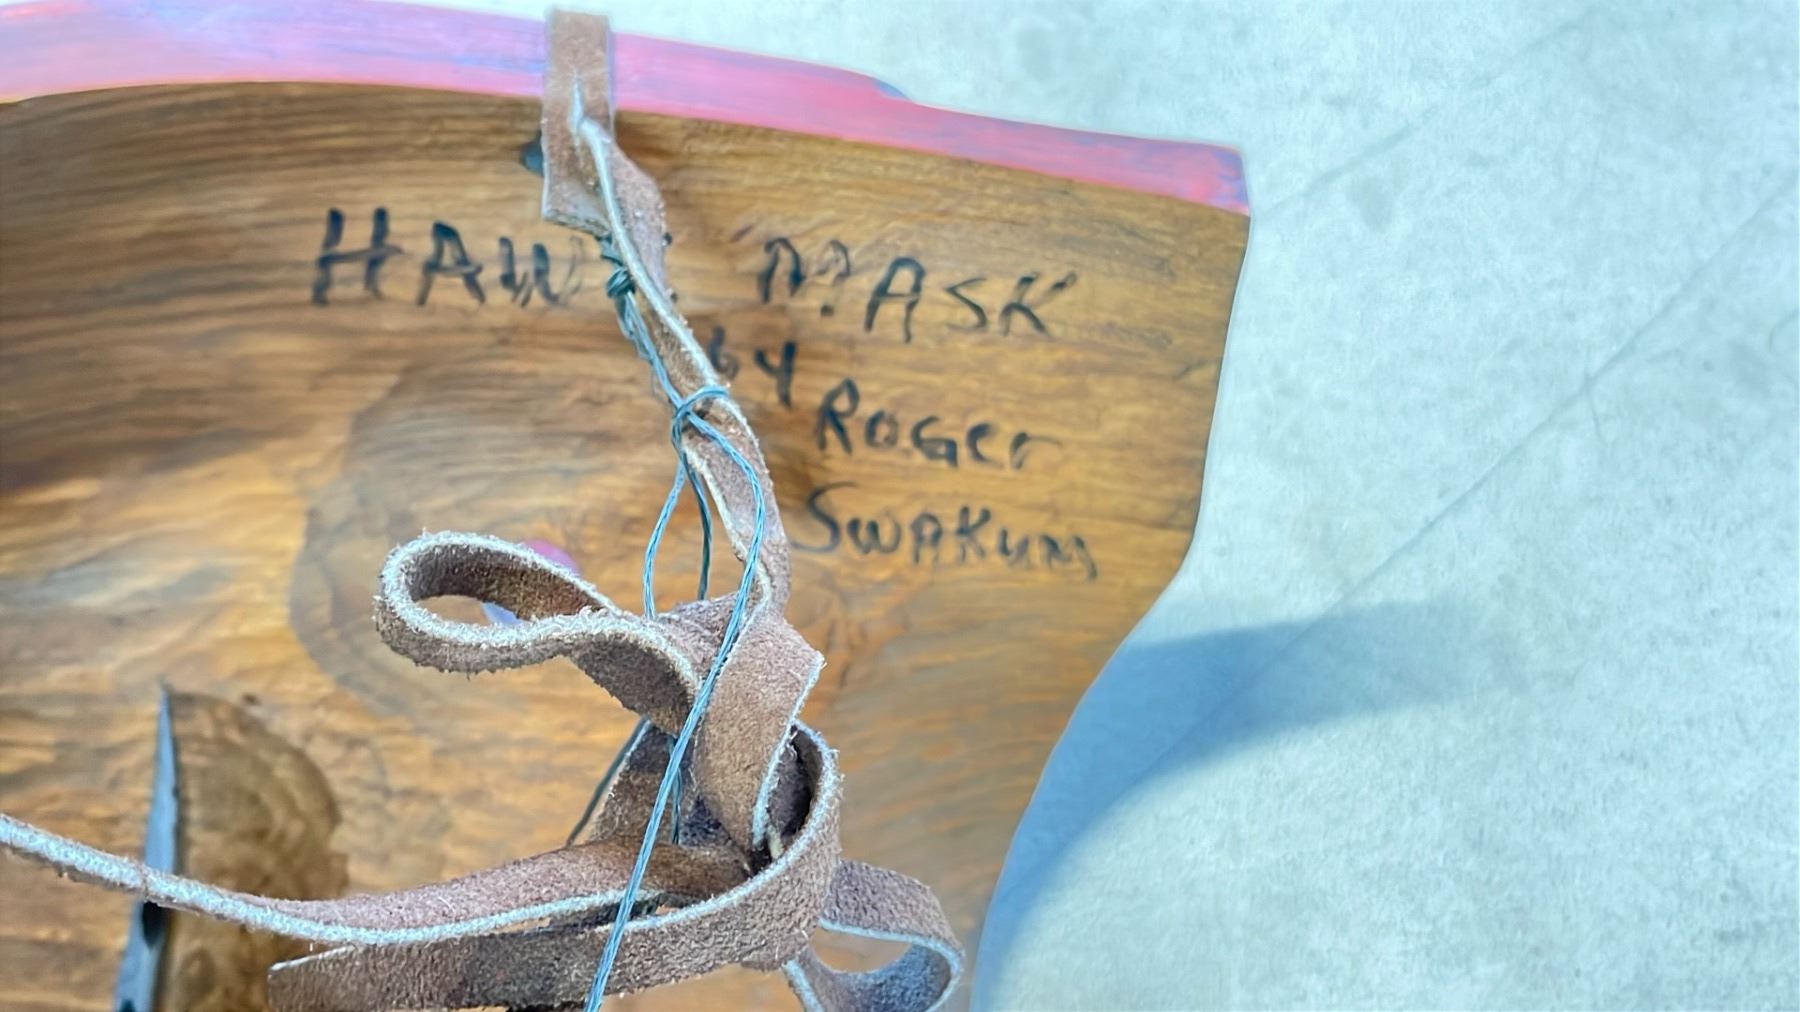 HAWK MASK
by
ROGer
SWAKUM